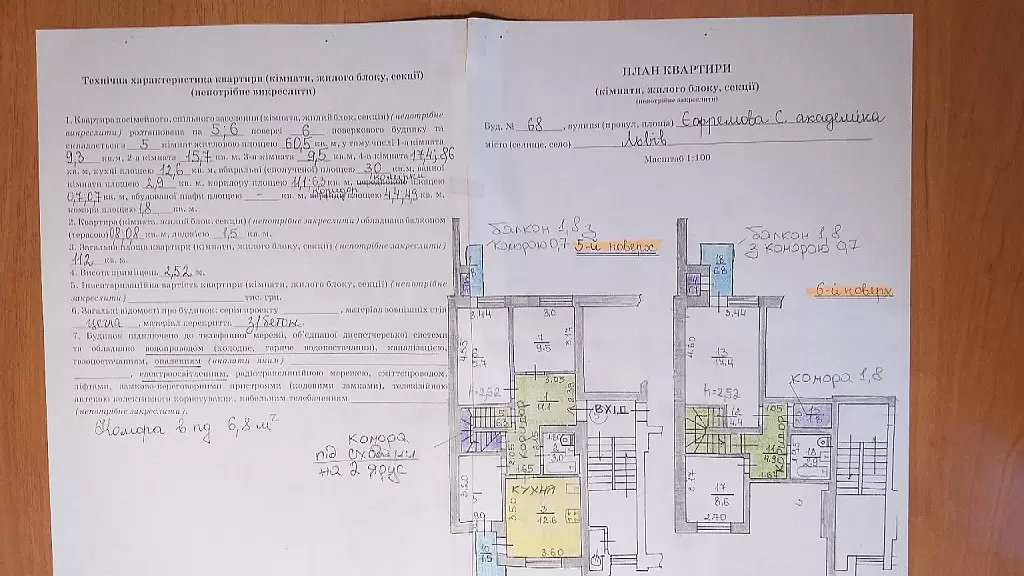 Технічна характеристика квартири (кімнати, жилого блоку, секції)
(непотрібне викреслити)
1. Квартира посімейного, спільного заселення (кімната, жилий блок, секція) (непотрібне
викреслити) розташована на 5,6 поверсі 6 поверхового будинку та
складається з 5 кімнат жилою площею 60,5 кв. м, у тому числі 1-а кімната
9,3 кв.м, 2-а кімната 15,7 кв. м, 3-я кімната 9,5 кв.м, 4-а кімната 17,4; 8,6
кв. м, кухні площею 12,6 кв. м, вбиральні (сполученої) площею 3,0 кв.м, ванної
кімнати площею 2,9 кв. м, коридору площею 11,1; 6,3 кв. м, площею
0,7, 0,7 кв. м, вбудованої шафи площею - кв. м, коридор площею 4,4, 4,9 кв. м,
комори площею 1,8 кв. м.
2. Квартира (кімната, жилий блок, секція) (непотрібне закреслити) обладнана балконом
(терасою) 0,8; 0,8 кв. м, лоджією 1,5 кв. м.
3. Загальна площа квартири (кімнати, жилого блоку, секції) (непотрібне закреслити)
112 кв. м.
4. Висота приміщень 2,52 м.
5. Інвентаризаційна вартість квартири (кімнати, жилого блоку, секції) (непотрібне
закреслити) тис. грн.
6. Загальні відомості про будинок: серія проекту , матеріал зовнішніх стін
цегла , матеріал перекриття з/бетон.
7. Будинок підключено до телефонної мережі, об'єднаної диспетчерської системи
та обладнано водопроводом (холодне, гаряче водопостачання), каналізацією,
газопостачанням, опаленням (вказати яким)
, електроосвітленням, радіотрансляційною мережею, сміттєпроводом,
ліфтами, замково-переговорними пристроями (кодовими замками), телевізійною
антеною колективного користування, кабельним телебаченням
(непотрібне закреслити).
Комора в пд 6,8 м²
комора
під сходами
на 2 ярус
ПЛАН КВАРТИРИ
(кімнати, жилого блоку, секції)
(непотрібне закреслити)
Буд. № 68 , вулиця (провул, площа) Єфремова С. академіка
місто (селище, село) Львів
Масштаб 1:100
балкон 1,8 з
коморою 0,7 5-й поверх
3.44
3.0
4.55
5.7
7
9.5
3.17
h=2,52
3.03
1
11.1
коридор
ВХІД
2
3.0
2.05
1.65
3.20
кухня
3.50
3
12.6
3.60
10
1.5
балкон 1,8
з коморою 0,7
6-й поверх
18
0.8
3.44
4.60
13
17.4
h=2,52
комора 1,8
12
4.4
1.05
15
1.8
коридор
14
4.9
1.67
16
2.9
3.17
17
8.6
2.70